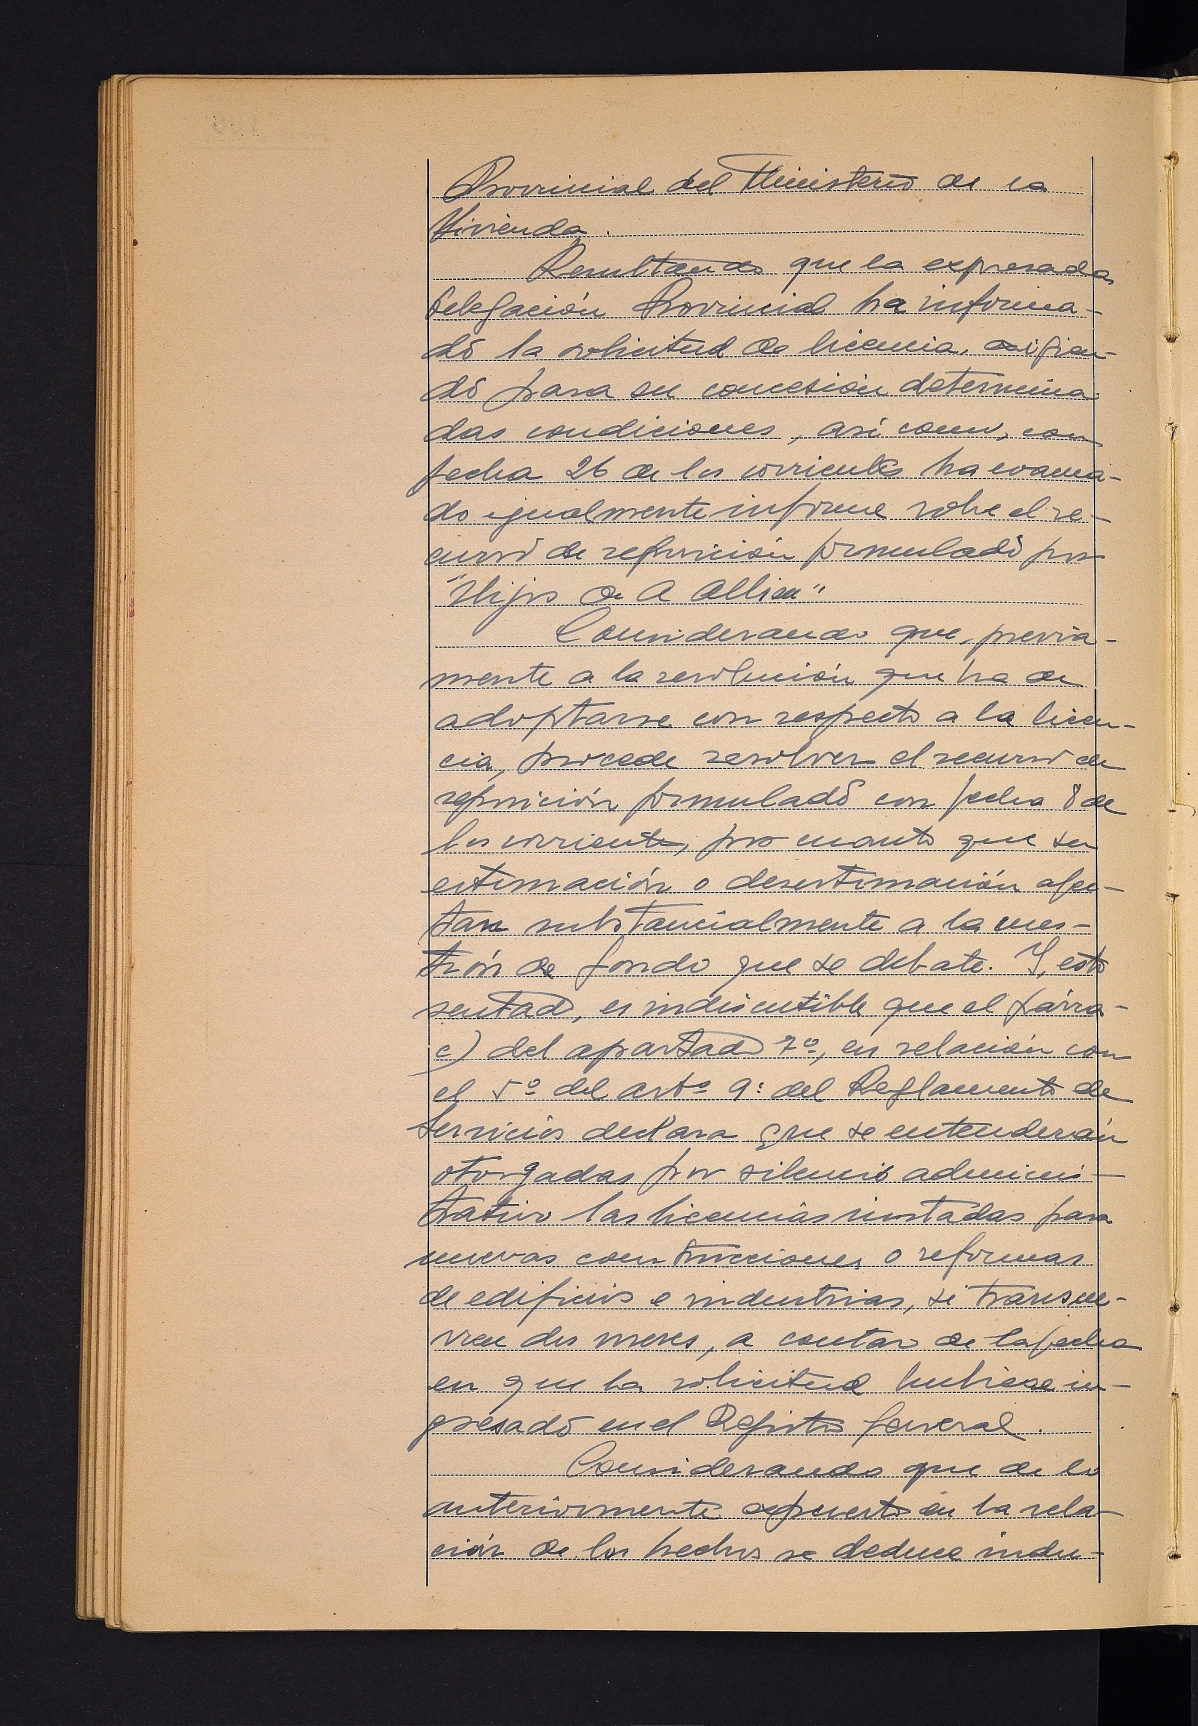 Provincial del Ministerio de la
Vivienda.
Resultando que la expresada
Delegación Provincial ha informa-
do la solicitud de licencia, exigien-
do para su concesión determina
das condiciones, así como, con
fecha 26 de los corrientes ha evacua-
do igualmente informe sobre el re-
curso de reposición formulado por
"Hijos de A
Considerando que, previa-
mente a la resolución que ha de
adoptarse con respecto a la licen-
cia, procede resolver el recurso de
reposición formulado con fecha 8 de
los corrientes, por cuanto que su
estimación o desestimación afec-
tan substancialmente a la cues-
tión de fondo que se debate. Y, esto
sentado, es indiscutible que el párra-
c) del apartado 7º, en relación con
el 5º del artº 9º del Reglamento de
Servicios declara que se entenderán
otorgadas por silencio adminis-
trativo las licencias instadas para
nuevas construcciones o reformas
de edificios e industrias, si transcu-
rren dos meses, a contar de la fecha
en que la solicitud hubiese in-
gresado en el Registro general.
Considerando que de lo
anteriormente expuesto en la rela-
ción de los hechos se deduce indu-